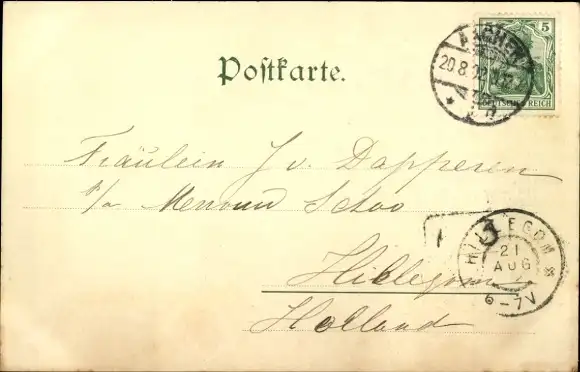 5
AACHEN
20.8.02
DEUTSCHES REICH
Postkarte.
Fräulein J v. Dapperen
p/a Mevrouw Schoo
Hillegom
Holland
HILLEGOM
21
AUG
6-7V